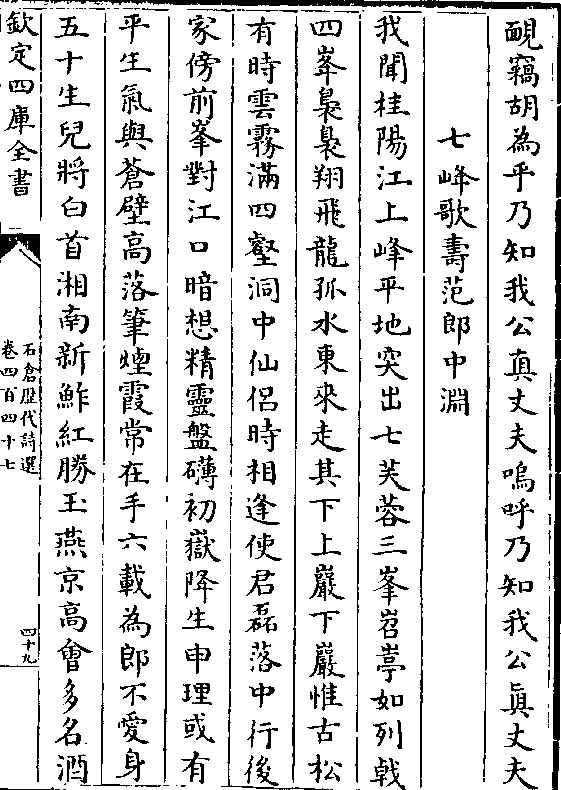 覥竊胡為乎乃知我公真丈夫嗚呼乃知我公真丈夫
七峰歌壽范郎中淵
我聞桂陽江上峰平地突出七芙蓉三峯岧亭如列戟
四峯裊裊翔飛龍孤水東來走其下上巖下巖惟古松
有時雲霧滿四壑洞中仙侣時相逢使君磊落中行後
家傍前峯對江口暗想精靈盤礴初嶽降生申理或有
平生氣與蒼壁高落筆煙霞常在手六載為郎不愛身
五十生兒將白首湘南新鮓紅勝玉燕京高會多名酒
欽定四庫全書
石倉歷代詩選
卷四百四十七
四十九